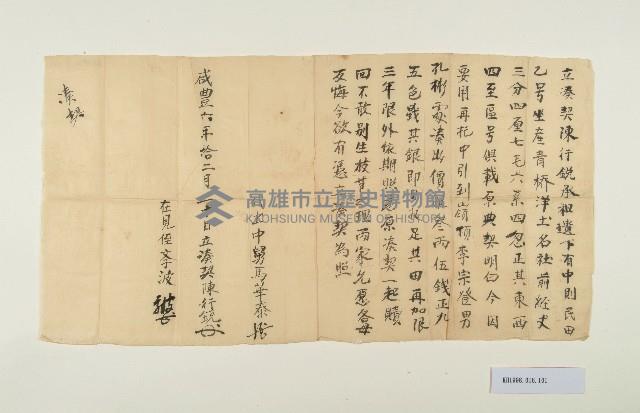 立湊契陳行銳承祖遺下有中則民田
乙号坐產青桥洋土名社前經丈
三分四厘七毛六系四忽正其東西
四至區号俱載原典契明白今因
要用再托中引到嶺頂李宗登男
孔彬處湊出價叁两伍錢正九
五色戥其銀即收足其田再加限
三年限外依期照原湊契一起贖
回不敢別生枝其理两家允愿各毋
反悔今欲有憑立湊契為照
中男馬華泰
咸豐六年拾二月日立湊契陳行銳
在見侄李波
湊契
高雄市立歷史博物館
KAOHSIUNG MUSEUM OF HISTORY
KH1998.016.101